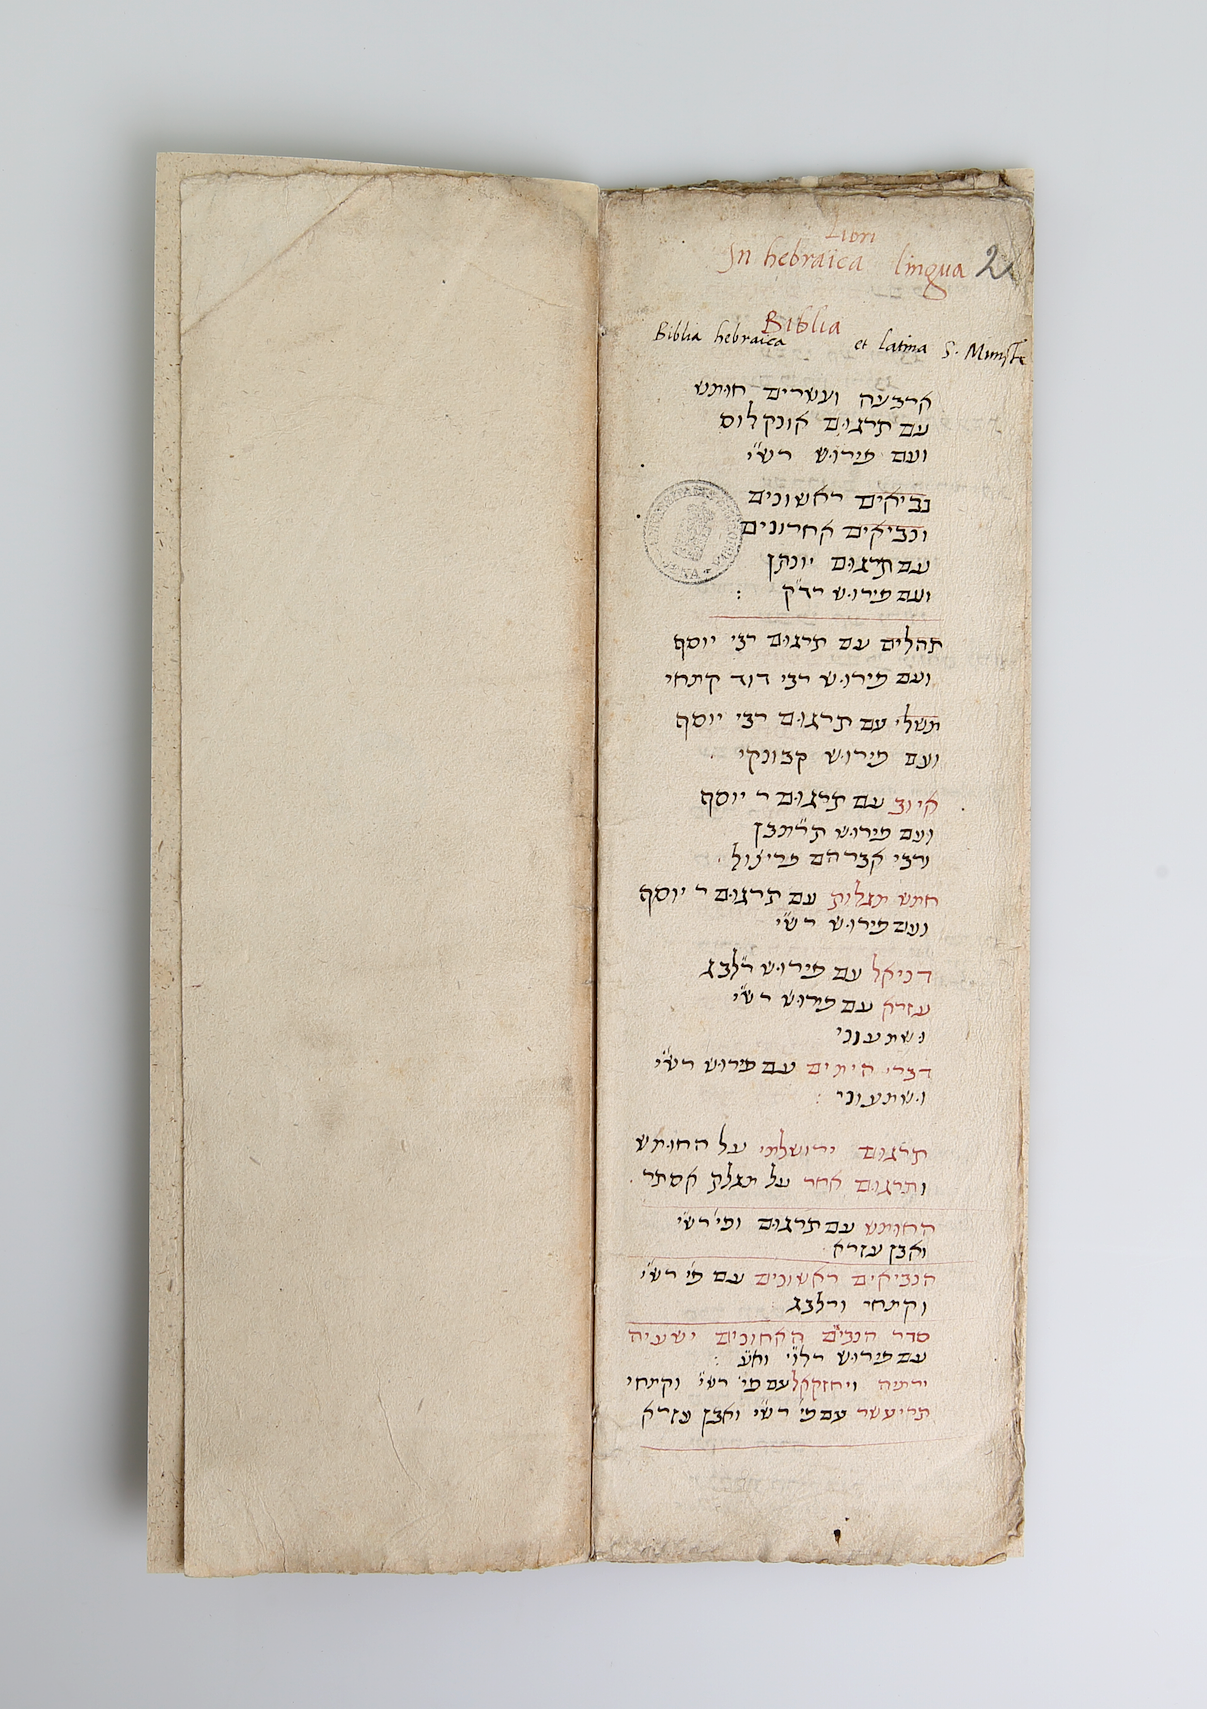 Libri
In hebraica lingua 2
Biblia
Biblia hebraica et latina S. Munste
ארבעה ועשרים חומש
עם תרגום אונקלוס
ועם פירוש רש״י
נביאים ראשונים
ונביאים אחרונים
עם תרגום יונתן
ועם פירוש רד״ק :
תהלים עם תרגום רבי יוסף
ועם פירוש רבי דוד קמחי
משלי עם תרגום רבי יוסף
ועם פירוש קבונקי
איוב עם תרגום ר יוסף
ועם פירוש הרמב״ן
ורבי אברהם פריצול
חמש מגלות עם תרגום ר יוסף
ועם פירוש רש״י
דניאל עם פירוש רלב״ג
עזרא עם פירוש רש״י
ושמעוני
דברי הימים עם פירוש רש״י
ושמעוני :
תרגום ירושלמי על החומש
ותרגום אחר על מגלת אסתר
החומש עם תרגום ופי׳ רש״י
ואבן עזרא
הנביאים ראשונים עם פי׳ רש״י
וקמחי ורלבג
סדר הנביאים ישעיה
עם פירוש
ירמיה ויחזקאל עם פי׳ רש״י וקמחי
תרי עשר עם פי׳ רש״י ואבן עזרא